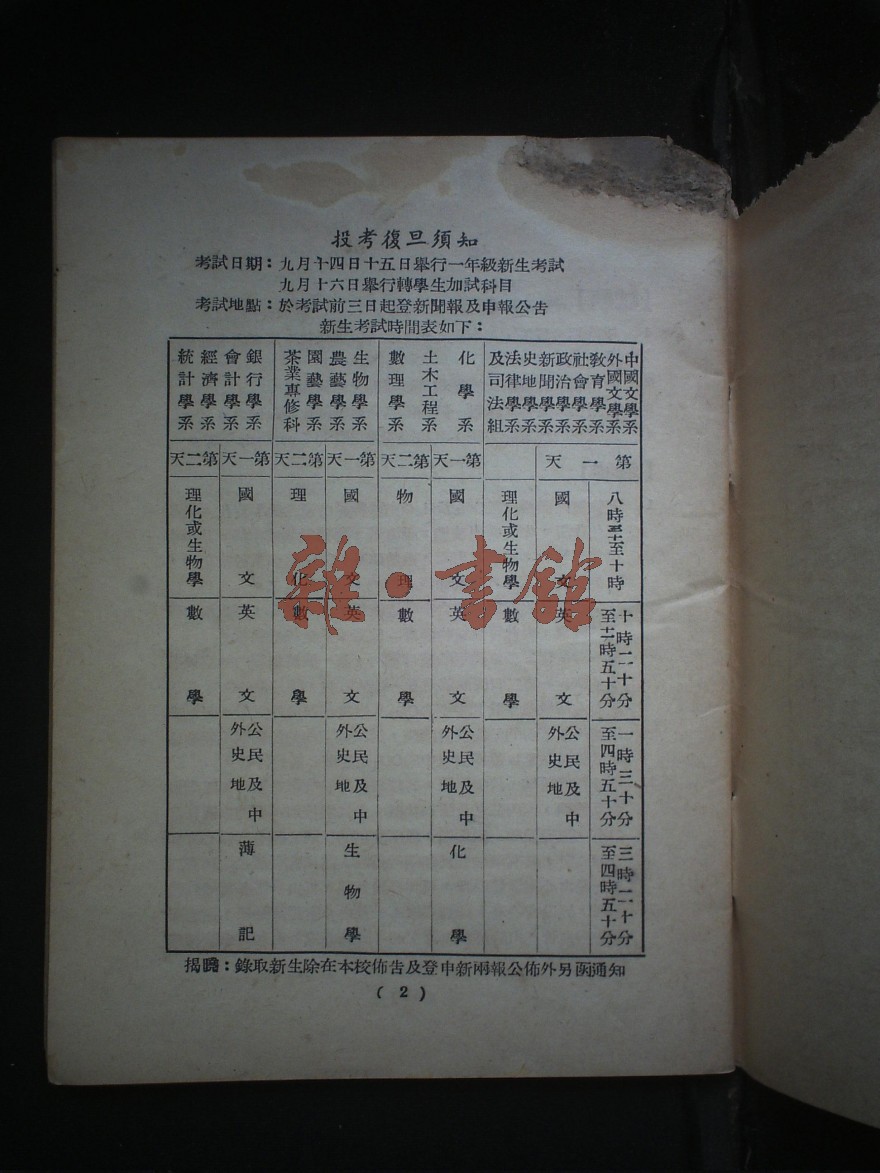 投考復旦須知
考試日期：九月十四日十五日舉行一年級新生考試
九月十六日舉行轉學生加試科目
考試地點：於考試前三日起登新聞報及申報公告
新生考試時間表如下：
中國文學系
外國文學系
教育學系
社會學系
政治學系
新聞學系
史地學系
法律學系
及司法組
化學系
土木工程系
數理學系
生物學系
農藝學系
園藝學系
茶業專修科
銀行學系
會計學系
經濟學系
統計學系
第一天
第一天
第二天
第一天
第二天
第一天
第二天
八時至十時
國文
理化或生物學
國文
物理
國文
理化
國文
理化或生物學
十時二十分
至十二時五十分
英文
數學
英文
數學
英文
數學
英文
數學
一時三十分
至四時五十分
公民及中
外史地
公民及中
外史地
公民及中
外史地
公民及中
外史地
三時二十分
至四時五十分
化學
生物學
薄記
揭曉：錄取新生除在本校佈告及登申新兩報公佈外另函通知
( 2 )
雜·書館